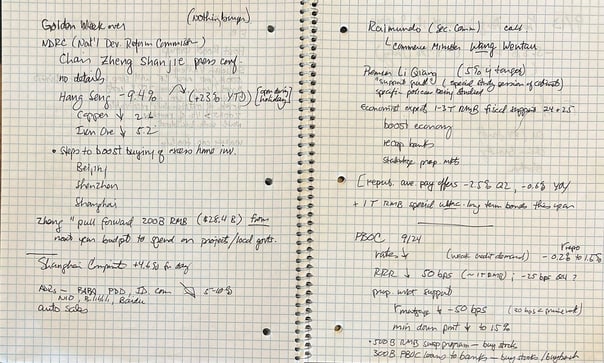 Golden Week over (Nothingburger)
NDRC (Nat'l Dev. Reform Commission)
Chair Zheng Shanjie press conf.
no details
Hang Seng -9.4% (+23% YTD) [open during holiday]
Copper ↓ 2.
Iron Ore ↓ 5.2
• Steps to boost buying of excess home inv.
Beijing
Shenzhen
Shanghai
Zheng "pull forward 200B RMB ($28.4B) from
next year budget to spend on project/local govts.
Shanghai Composite +4.6% for day
ADRs - BABA, PDD, JD.com 5-10%
NIO, Bilibili, Baidu
auto sales
Raimundo (Sec. Comm) call
Commerce Minister Wang Wentao
Premier Li Qiang (5% GDP target)
(special study session of cabinet)
policies being studied
Economist expect 1-3T RMB fiscal support 24+25
boost economy
recap banks
stabilize prop. mkts
ave. pay offers -2.5% Q2, -0.6% YOY
+ 1T RMB special ultra-long term bonds this year
PBOC 9/24
rates ↓ (weak credit demand) - 0.2% to 1.5%
RRR ↓ 50 bps (~1T RMB); -25 bps Q4?
prop. mkt support
r mortgage ↓ -50 bps
min down pmt ↓ to 15%
• 500B RMB swap program - buy stocks
300B PBOC loans to banks - buy stocks/buyback